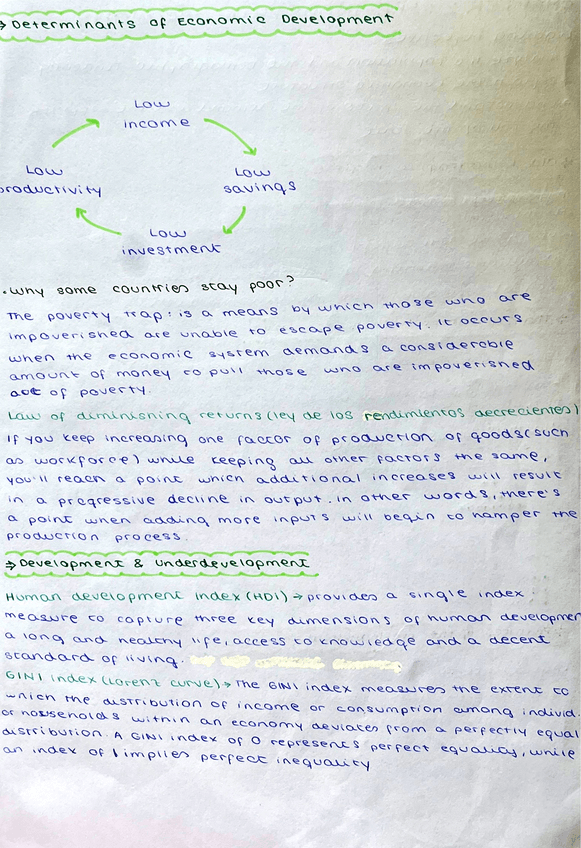 → Determinants of Economic Development
Low
income
Low
productivity
Low
savings
Low
investment
. Why some countries stay poor?
The poverty trap: is a means by which those who are
impoverished are unable to escape poverty. It occurs
when the economic system demands a considerable
amount of money to pull those who are impoverished
out of poverty.
Law of diminishing returns (ley de los rendimientos decrecientes)
If you keep increasing one factor of production of goods (such
as workforce) while keeping all other factors the same,
you'll reach a point which additional increases will result
in a progressive decline in output. In other words, there's
a point when adding more inputs will begin to hamper the
production process.
→ Development & Underdevelopment
Human development Index (HDI) → provides a single index
measure to capture three key dimensions of human developmen
a long and healthy life, access to knowledge and a decent
standard of living.
GINI index (Lorenz curve) → The GINI index measures the extent to
which the distribution of income or consumption among individ
or households within an economy deviates from a perfectly equal
distribution. A GINI index of 0 represents perfect equality, while
an index of 1 implies perfect inequality